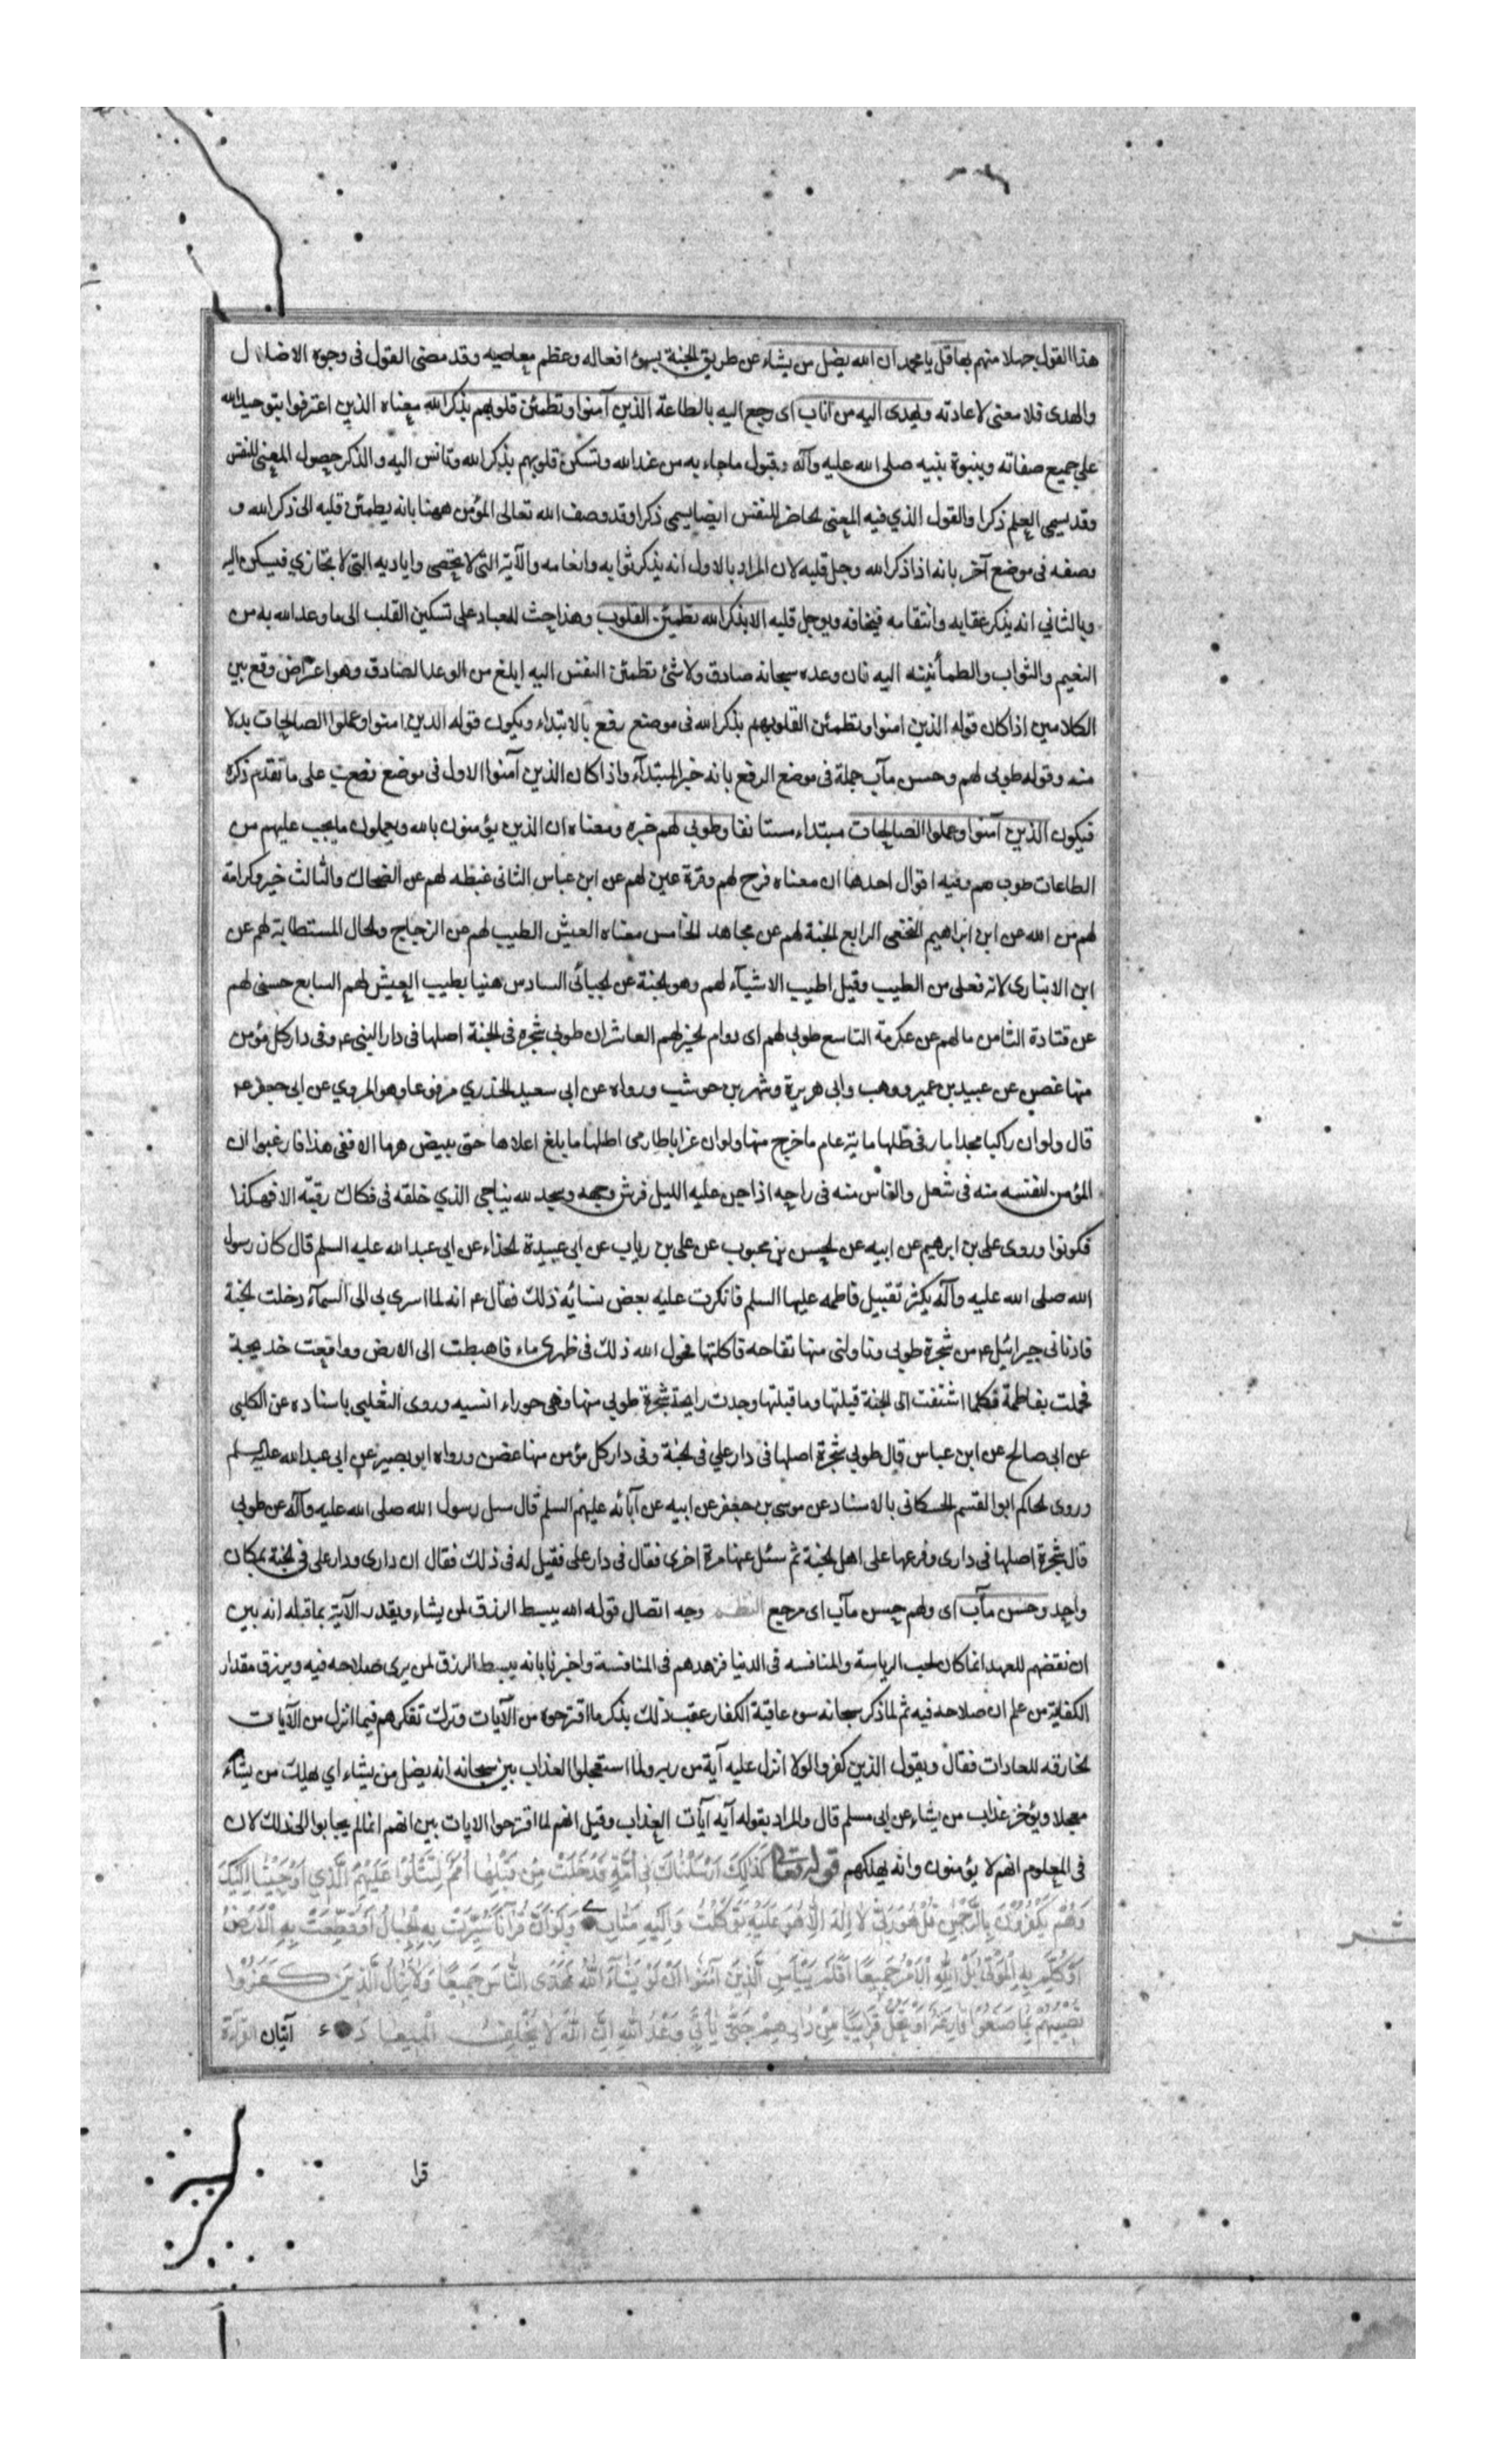 هذا القول جهلا منهم بها قل يا محمد ان الله يضل من يشاء عن طريق الجنة بسوئ افعاله وعظم معاصيه وقد مضى القول فى وجوه الاضلال
والهدى فلا معنى لاعادته ويهدى اليه من اناب اى رجع اليه بالطاعة الذين آمنوا وتطمئن قلوبهم بذكر الله معناه الذين اعترفوا بتوحيد الله
على جميع صفاته وبنبوة نبيه صلى الله عليه وآله وقبول ماجاء به من عند الله وتسكن قلوبهم بذكر الله وتانس اليه والذكر حصول المعنى للنفس
وقد يسمى العلم ذكرا والقول الذي فيه المعنى الحاضر للنفس ايضا يسمى ذكرا وقد وصف الله تعالى المؤمن ههنا بانه يطمئن قلبه الى ذكر الله و
وصفه فى موضع آخر بانه اذا ذكر الله وجل قلبه لان المراد بالاول انه يذكر ثوابه وانعامه والآئه التى لا تحصى واياديه التى لا تجازي فيسكن اليه
وبالثاني انه يذكر عقابه وانتقامه فيخافه ويوجل قلبه الا بذكر الله تطمئن القلوب وهذا حث للعباد على تسكين القلب الى ما وعد الله به من
النعيم والثواب والطمأنينه اليه فان وعده سبحانه صادق ولا شئ تطمئن النفس اليه ابلغ من الوعد الصادق وهو اعتراض وقع بين
الكلامين اذا كان قوله الذين امنوا وتطمئن القلوبهم بذكر الله فى موضع رفع بالابتداء ويكون قوله الذين امنوا وعملوا الصالحات بدلا
منه وقوله طوبى لهم وحسن مآب جملة فى موضع الرفع بانه خبر المبتدآء واذا كان الذين آمنوا الاول فى موضع نصب على ما تقدم ذكره
فيكون الذين آمنوا وعملوا الصالحات مبتداء مستانفا وطوبى لهم خبره ومعناه ان الذين يؤمنون بالله ويعملون ما يجب عليهم من
الطاعات طوبى لهم وفيه اقوال احدها ان معناه فرح لهم وقرة عين لهم عن ابن عباس الثانى غبطه لهم عن الضحاك والثالث خير وكرامة
لهم من الله عن ابن ابراهيم النخعى الرابع الجنة لهم عن مجاهد الخامس معناه العيش الطيب لهم عن الزجاج والحال المستطابة لهم عن
ابن الانبارى لانه فعلى من الطيب وقيل اطيب الاشيآء لهم وهو الجنة عن الجبائى السادس هنيا بطيب العيش لهم السابع حسنى لهم
عن قتادة الثامن ما لهم عن عكرمة التاسع طوبى لهم اى دوام الخير لهم العاشر ان طوبى شجره فى الجنة اصلها فى دار النبى ع وفى دار كل مؤمن
منها غصن عن عبيد بن عمير ووهب وابى هريرة وشهر بن حوشب ورواه عن ابى سعيد الخدري مرفوعا وهو المروي عن ابى جعفر ع
قال ولو ان راكبا مجدا سار فى ظلها مائة عام ما خرج منها ولو ان غرابا طار من اصلها ما بلغ اعلاها حتى يبيض هرما الا ففى هذا فارغبوا ان
المؤمن لنفسه منه فى شغل والناس منه فى راحه اذا جن عليه الليل فرش وجهه وسجد لله يناجى الذي خلقه فى فكاك رقبته الا فهكذا
فكونوا وروى على بن ابرهيم عن ابيه عن الحسن بن محبوب عن على بن رياب عن ابى عبيدة الحذاء عن ابى عبد الله عليه السلم قال كان رسول
الله صلى الله عليه وآله يكثر تقبيل فاطمه عليها السلم فانكرت عليه بعض نسائه ذلك فقال ع انه لما اسرى بى الى السمآء دخلت الجنة
فادنانى جبرائيل ع من شجرة طوبى وناولنى منها تفاحه فاكلتها فحول الله ذلك فى ظهرى ماء فاهبطت الى الارض وواقعت خديجة
فحملت بفاطمة فكلما اشتقت الى الجنة قبلتها وما قبلتها وجدت رايحة شجرة طوبى منها وهى حوراء انسيه وروى الثعلبى باسناده عن الكلبى
عن ابى صالح عن ابن عباس قال طوبى شجرة اصلها فى دار علي فى الجنة وفى دار كل مؤمن منها غصن ورواه ابو بصير عن ابى عبد الله عليه السلم
وروى الحاكم ابو القسم الحسكانى بالاسناد عن موسى بن جعفر عن ابيه عن آبائه عليهم السلم قال سيل رسول الله صلى الله عليه وآله عن طوبى
قال شجرة اصلها فى دارى وفرعها على اهل الجنة ثم سئل عنها مرة اخرى فقال فى دار على فقيل له فى ذلك فقال ان دارى ودار على فى الجنة بمكان
واحد وحسن مآب اى ولهم حسن مآب اى مرجع النظم وجه اتصال قوله الله يبسط الرزق لمن يشاء ويقدر الآية بما قبله انه بين
ان نقضهم للعهد انما كان لحب الرياسة والمنافسه فى الدنيا فزهدهم فى المنافسة واخبرنا بانه يبسط الرزق لمن يرى صلاحه فيه ويرزق مقدار
الكفاية من علم ان صلاحه فيه ثم لما ذكر سبحانه سوء عاقبة الكفار عقب ذلك بذكر ما اقترحوه من الآيات وترك تفكرهم فيما انزل من الآيات
الخارقه للعادات فقال ويقول الذين كفروا لولا انزل عليه آية من ربه ولما استعجلوا العذاب بين سبحانه انه يضل من يشاء اي يهلك من يشآء
معجلا ويؤخر عذاب من يشاء عن ابى مسلم قال والمراد بقوله آيه آيات العذاب وقيل انهم لما اقترحوا الايات بين انهم انما لم يجابوا الى ذلك لان
فى المعلوم انهم لا يؤمنون وانه يهلكهم قوله تعا كَذَلِكَ اَرْسَلْنَاكَ فِى اُمَّةٍ قَدْ خَلَتْ مِنْ قَبْلِهَا اُمَمٌ لِتَتْلُوَا عَلَيْهِمُ الَّذِي اَوْحَيْنَا اِلَيْكَ
وَهُمْ يَكْفُرُونَ بِالرَّحْمٰنِ قُلْ هُوَ رَبِّى لَا اِلٰهَ اِلَّا هُوَ عَلَيْهِ تَوَكَّلْتُ وَاِلَيْهِ مَتَابِ وَلَوْ اَنَّ قُرْآنًا سُيِّرَتْ بِهِ الْجِبَالُ اَوْ قُطِّعَتْ بِهِ الْاَرْضُ
اَوْ كُلِّمَ بِهِ الْمَوْتٰى بَلْ لِلّٰهِ الْاَمْرُ جَمِيعًا اَفَلَمْ يَيْاَسِ الَّذِينَ آمَنُوا اَنْ لَوْ يَشَآءُ اللّٰهُ لَهَدَى النَّاسَ جَمِيعًا وَلَا يَزَالُ الَّذِينَ كَفَرُوا
تُصِيبُهُمْ بِمَا صَنَعُوا قَارِعَةٌ اَوْ تَحُلُّ قَرِيبًا مِنْ دَارِهِمْ حَتَّى يَأْتِيَ وَعْدُ اللّٰهِ اِنَّ اللّٰهَ لَا يُخْلِفُ الْمِيعَادَ ء آيتان القراءة
قرا